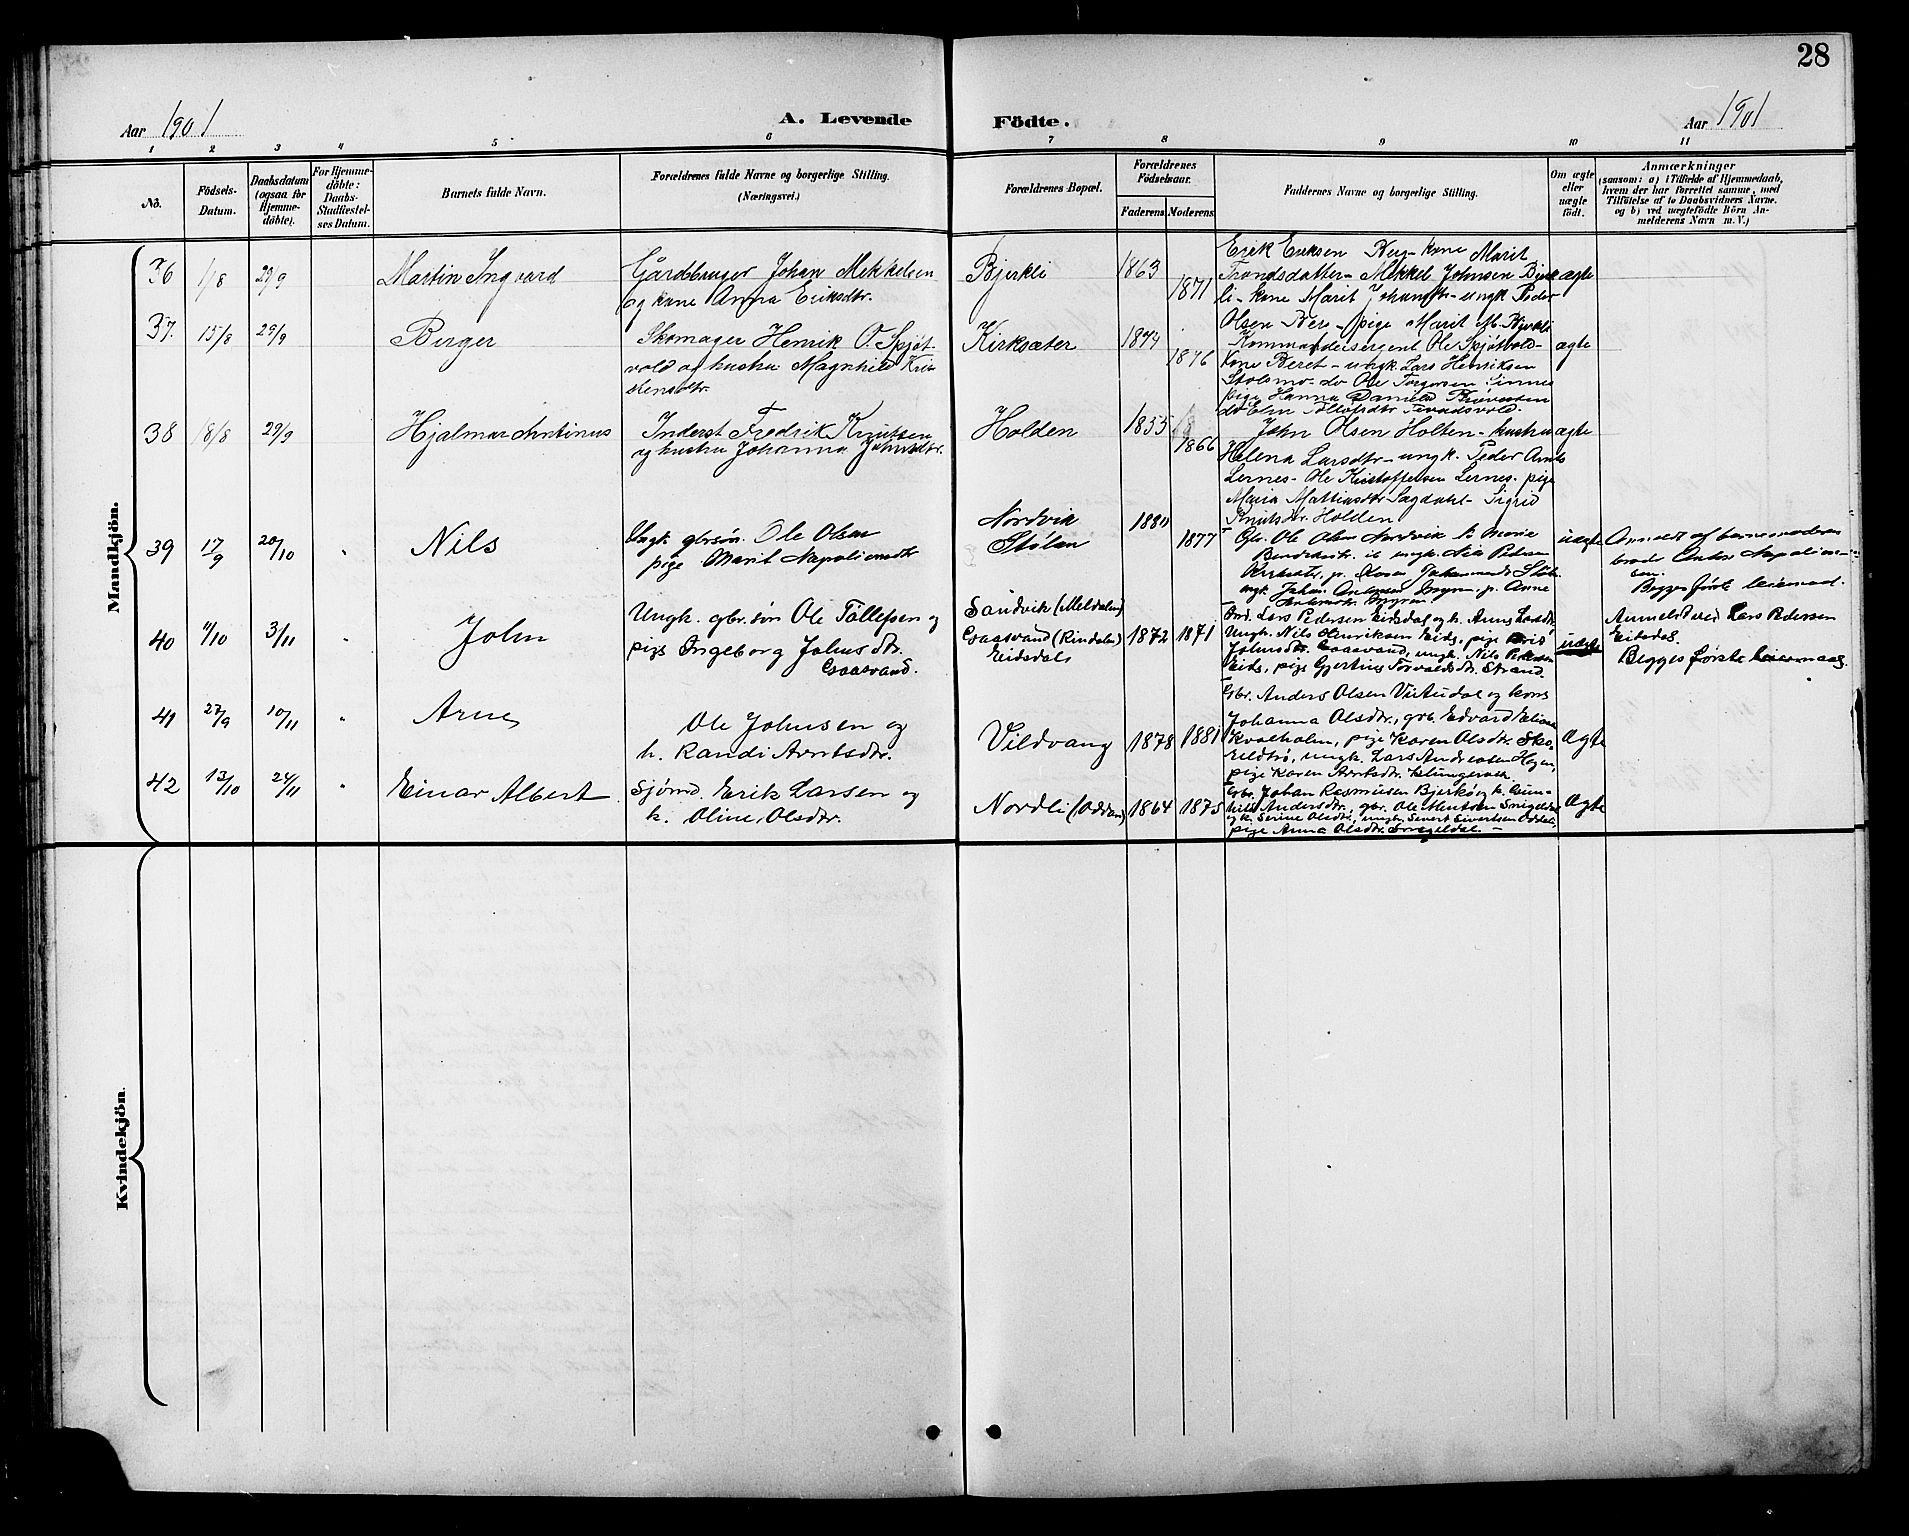 28
Aar 1901
A. Levende Födte.
Aar 1901
1 2 3 4 5 6 7 8 9 10 11
No.
Födsels-Datum.
Daabsdatum (ogsaa for Hjemmedöbte).
For Hjemmedöbte: Daabs-Stadfæstelses Datum.
Barnets fulde Navn.
Forældrenes fulde Navne og borgerlige Stilling.
(Næringsvei.)
Forældrenes Bopæl.
Forældrenes Födselsaar.
Faderens
Moderens
Faddernes Navne og borgerlige Stilling.
Om ægte eller uægte født.
Anmærkninger
(saasom: a) i Tilfælde af Hjemmedaab,
hvem der har forrettet samme, med
Tilföielse af to Daabsvidners Navne,
og b) ved uægtefödte Börn Anmelderens Navn m. V.)
Mandkjön.
36 1/8 29/9 Martin Ingvard
Gårdbruger Johan Mekkelsen
og kone Anna Eriksdtr.
Bjerkli 1863 1871
Erik Eriksen kone Marit
Trondsdatter - Mekkel Johnsen Bjerk
li - kone Marit ungk Peder
ægte
37. 15/8 29/9 Berger
Skomager Henrik O. Spjøt
vold og hustru Magnhild Kri
stensdtr.
Kirksæter 1874 1876
Olsen pige Marit M.
Kommandersergent Ole Spjøtvold -
Kone Beret - ungk. Lars Henriksen
Stolsmo - do Ole Torgersen Sinnes
pige Hanna
ægte
38 18/8 29/9 Hjalmar Antinus
Inderst Fredrik Knutsen
og hustru Johanna Johnsdtr.
Holden 1855 1866
John Olsen Holten - hustru
Helena Larsdtr - ungk. Peder
Lernes - Ole Kristoffersen Lernes - pige
Maria Mattiasdtr Sagdahl - Sigrid
Knutsdtr. Holden
ægte
39 17/9 20/10 " Nils
Ungk. gbrsøn. Ole Olsen
pige Marit Napolionsdtr
Nordvik
Stølen
1880 1877
Gbr. Ole Olsen Nordvik k. Marie
ungk. Nils Pedersen
Kirksæter, p.
ungk. Johan p. Anne
uægte
Anmeldt af barnemoderens
broder Anders Napolion-
sen.
Begges første leiermaal.
40 4/10 3/11 " John
Ungk. gbr.søn Ole Tollefsen og
pige Ingeborg Johnsdtr.
Gaasvand.
Sandvik (Meldalen)
Gaasvand (Rindalen)
Eidsdal
1872 1871
Ind. Lars Pedersen Eidsdal og k. Anne Larsdtr.
Ungk. Nils Henriksen Eids, pige
Johnsdtr. Gaasvand, ungk. Nils Pedersen
Eids, pige Gjertine Torvaldsdtr. Strand.
uægte
Anmeldt ved Lars Pedersen
Eidsdal.
Begges første leiermaal.
41 27/9 10/11 " Arne
Ole Johnsen og
h. Randi Arntsdtr.
Vildvang 1878 1881
Gbr. Anders Olsen og kone
Johanna Olsdtr., gbr. Edvard
Kvalholm, pige Karen Olsdtr. Sko
ungk. Lars Andreasen
pige Karen Arntsdtr.
Ægte
42 13/10 24/11 " Einar Albert
Sjømd. Erik Larsen og
k. Oline Olsdtr.
Nordli (Oddan) 1864 1875
Gbr. Johan Rasmusen Bjerkø og k. Gun-
hild Andersdtr., gbr. Ole
og k. Serine Olsdtr., ungk. Sivert Sivertsen
pige Anna Olsdtr.
Ægte
Kvindekjön.